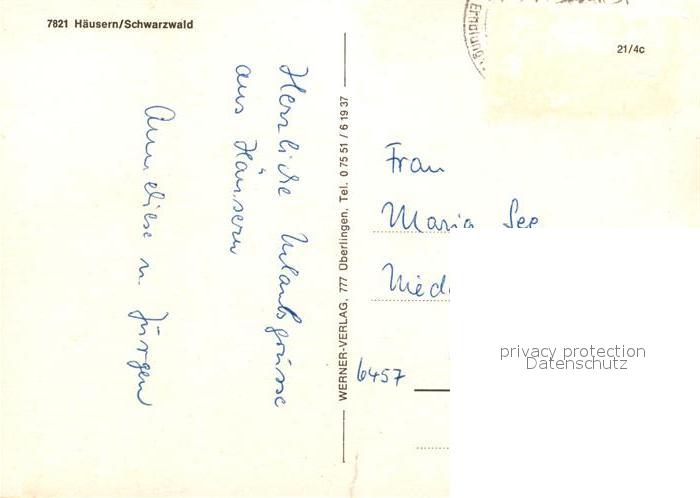 7821 Häusern/Schwarzwald
21/4c
Erholung
Herzliche Urlaubsgrüsse
aus Häusern
Anneliese u. Jürgen
WERNER-VERLAG, 777 Überlingen, Tel. 0 75 51 / 6 19 37
Frau
Maria See
Nied
6457
privacy protection
Datenschutz